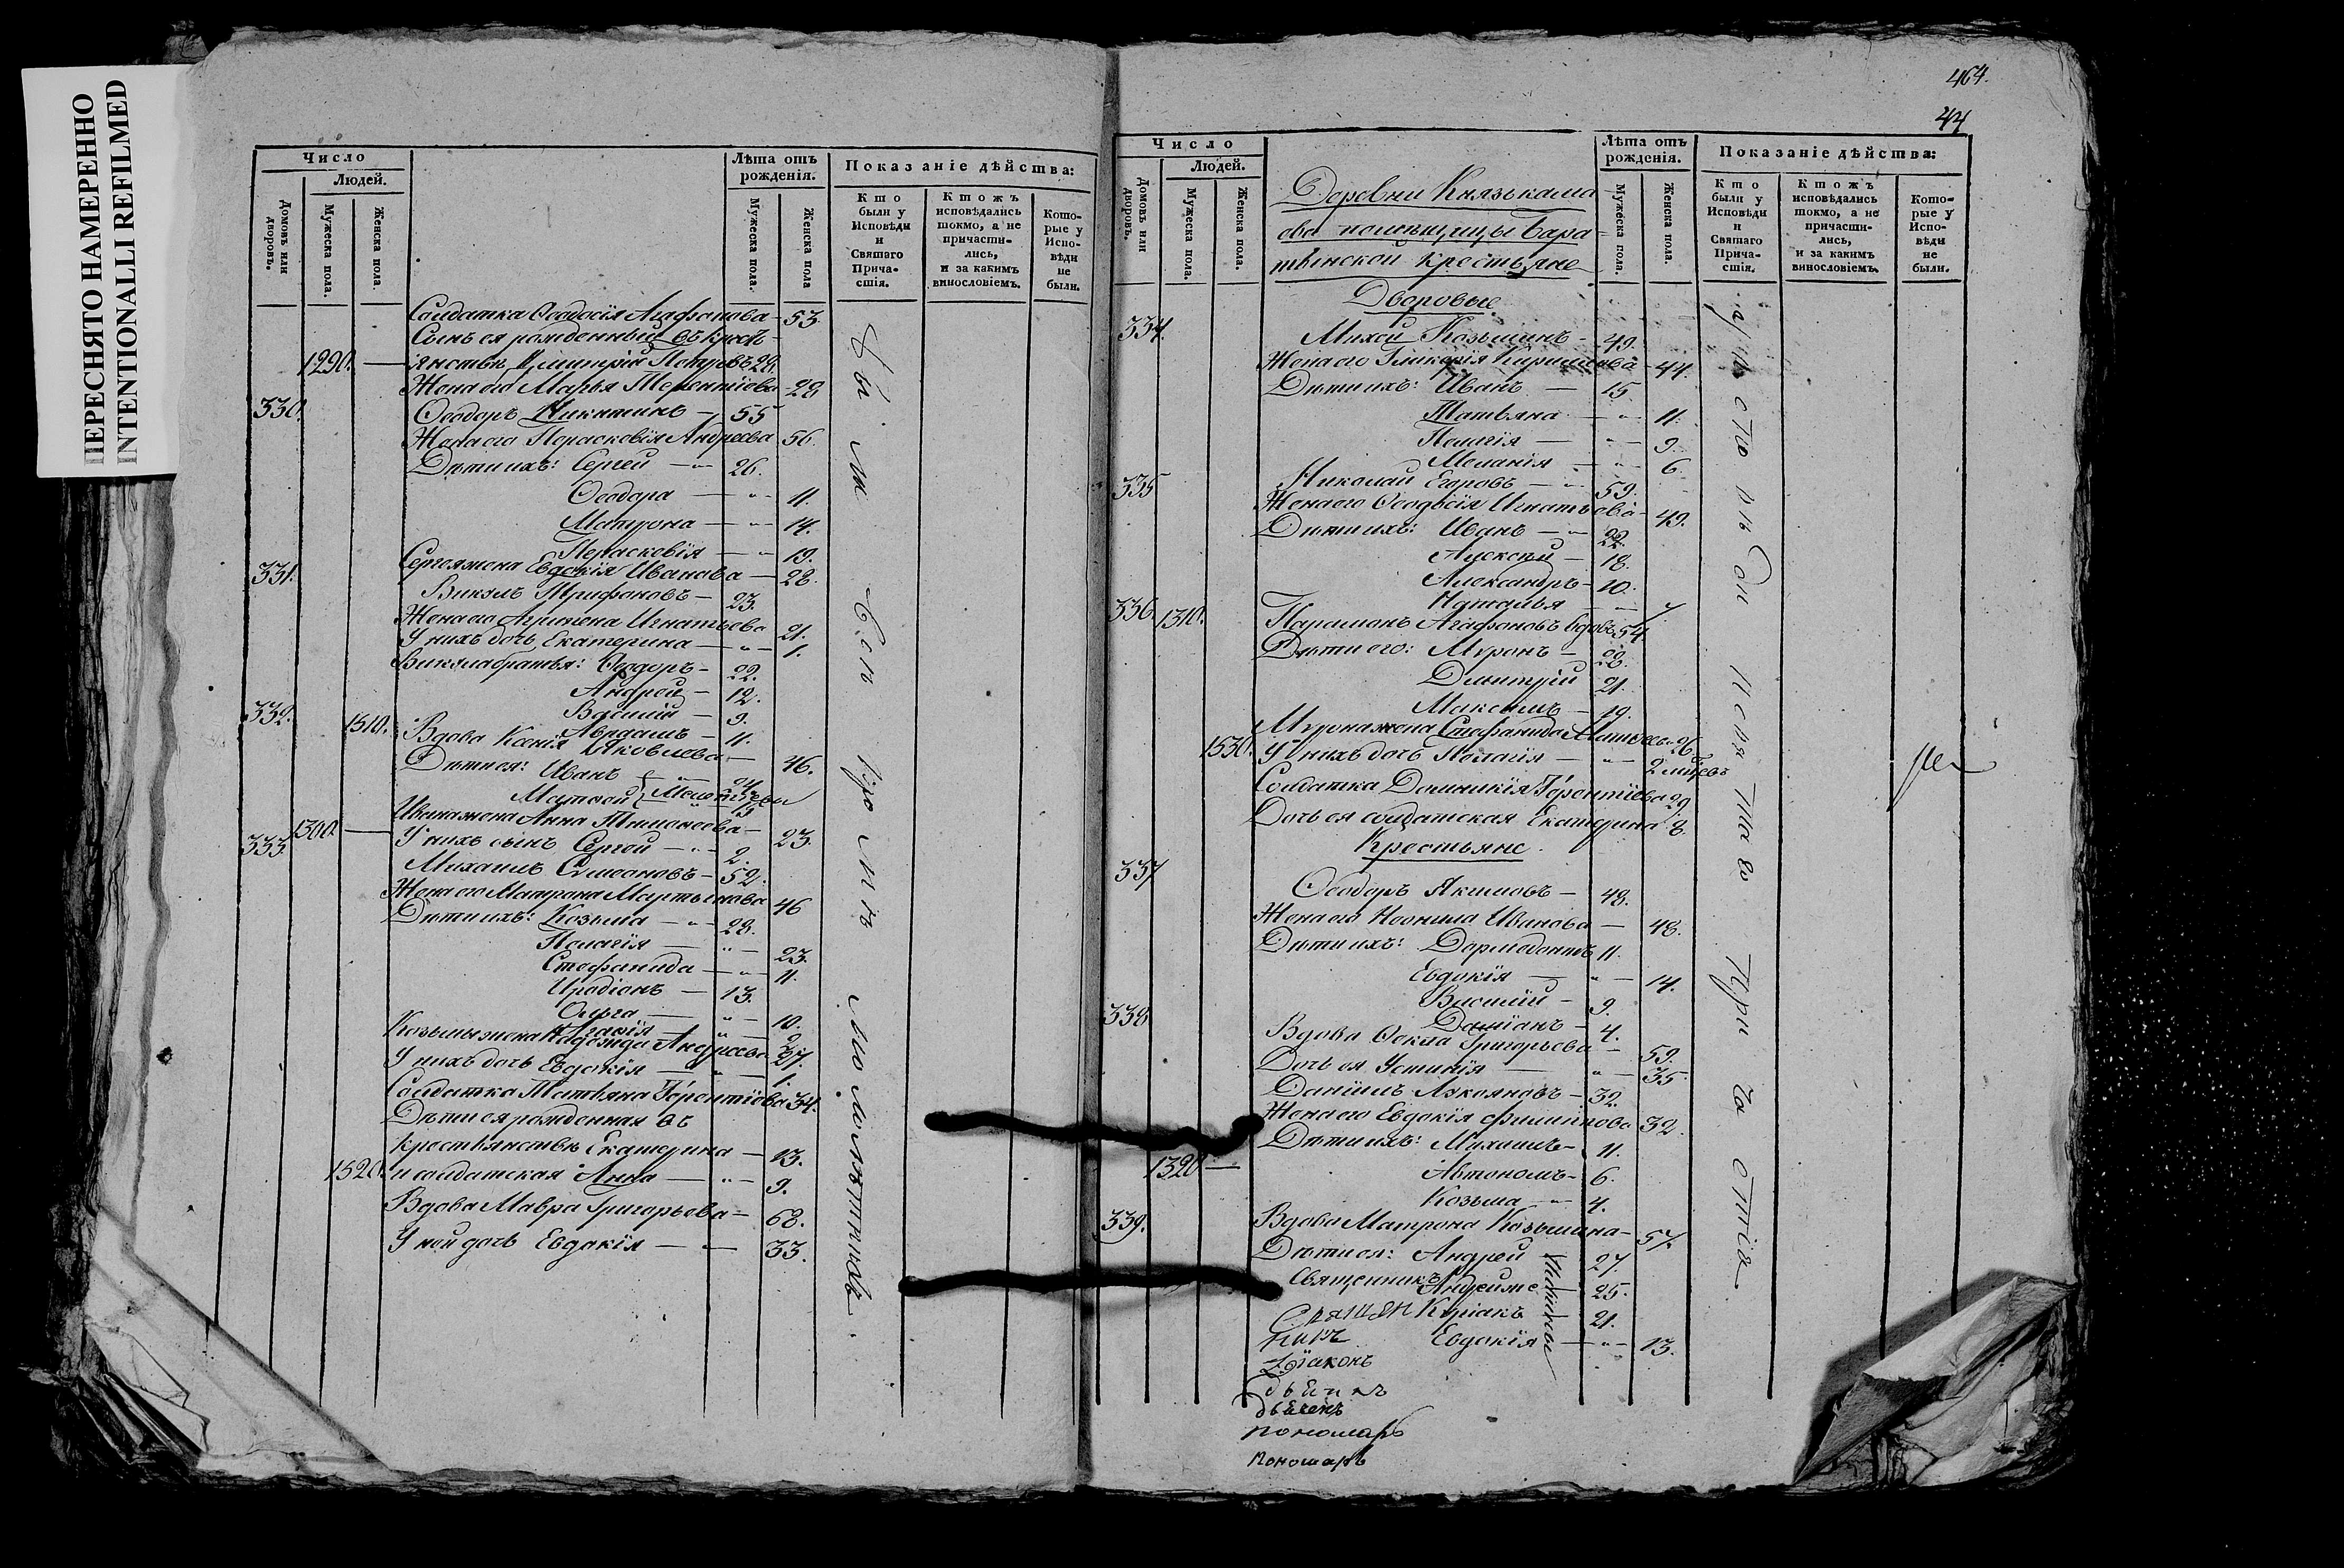 ПЕРЕСНЯТО НАМЕРЕННО
INTENTIONALLI REFILMED
Число
Людей.
Домовъ или дворовъ.
Мужеска пола.
Женска пола.
Лѣта отъ рожденія.
Мужеска пола.
Женска пола
Показаніе дѣйства:
Кто были у Исповѣди и Святаго Причастія.
Ктожъ исповѣдались токмо, а не причастились, и за какимъ винословіемъ.
Которые у Исповѣди не были.
Солдатка Ѳеодосія Агафонова - 53.
Сынъ ея рожденный въ кресть-
1290. — янствѣ Димитрій Петровъ 28.
Жена его Марья Терентіева - 28
330. Ѳеодоръ Никитинъ — 55
Жена его Парасковія Андреева 56.
Дѣти ихъ: Сергей — 26.
Ѳеодора — " - 11.
Матрона — " - 14.
Параскевія — " - 19.
Сергея жена Евдокія Иванова — 28.
331. Викулъ Трифоновъ — 23.
Жена его Агрипена Игнатьева 21.
У нихъ дочь Екатерина — " - 1.
Викула братья: Ѳеодоръ - 22.
Андрей - 12.
Василій - 9.
1510. - 11.
332. Вдова Ксенія Яковлева — 46.
Дѣти ея: Иванъ — 24.
Матвей
Ивана жена Анна Тимофеева —
23.
1300. — У нихъ сынъ Сергей — " - 2.
333. Михаилъ Симеоновъ - 52.
Жена его Матрона Мартынова 46
Дѣти ихъ: Козьма — " - 28.
Пелагія — " — 23.
Стефанида — " - 11.
Иродіонъ — 13.
Ольга — " - 10.
Агафія — " — 2.
Козьмы жена Надежда Андреева 27.
У нихъ дочь Евдокія — " — 1.
Солдатка Татьяна Терентіева 34.
Дѣти ея рожденная въ
крестьянствѣ Екатерина — 13.
1520. и солдатская Анна — " — 9.
Вдова Мавра Григорьева — 68.
У ней дочь Евдокія — " — 33.
Были
Всѣ
кромѣ
малолѣтнихъ.
464.
44
Число
Людей.
Домовъ или дворовъ.
Мужеска пола.
Женска пола.
Деревни Князькама
ева помещицы Бара
тынской крестьяне
Лѣта отъ рожденія.
Мужеска пола.
Женска пола.
Показаніе дѣйства:
Кто были у Исповѣди и Святаго Причастія.
Ктожъ исповѣдались токмо, а не причастились, и за какимъ винословіемъ.
Которые у Исповѣди не были.
Дворовые
334. Михей Козьминъ - 49.
Жена его Гликерія Кирилова - 44.
Дѣти ихъ: Иванъ — 15.
Татьяна — " - 11.
Пелагія — " — 9.
Меланія — " - 6.
335 Николай Егоровъ — 59.
Жена его Ѳеодосія Игнатьева - 49.
Дѣти ихъ: Иванъ — " 22.
Алексей — 18.
Александръ - 10.
Наталья — 7
336. 1310. Парамонъ Агафоновъ вдовъ 54
Дѣти его: Миронъ — 28.
Дмитрій 21.
Максимъ — 19.
Мирона жена Стефанида Матвеева 26.
1530. У нихъ дочь Пелагія — " — 2 мѣсець
Солдатка Домникія Терентіева 29
Дочь ея солдатская Екатерина 8.
Крестьяне.
337 Ѳеодоръ Якимовъ — 48.
Жена его Неонила Иванова — 48.
Дѣти ихъ: Дормедонтъ 11.
Евдокія — " — 14.
Василій - 9.
Даміанъ - 4.
338 Вдова Ѳекла Григорьева — 59.
Дочь ея Устинія — " — 35.
Даніилъ Лукояновъ — 32.
Жена его Евдокія Филиппова 32.
Дѣти ихъ: Михаилъ - 11.
1320 — Автономъ - 6.
Козьма — " - 4.
339. Вдова Матрона Козьмина - 57.
Дѣти ея: Андрей 27.
Андрей же — 25.
Киріакъ — 21.
Евдокія — " - 13.
Священникъ
Священ
никъ
Діаконъ
дьячекъ
пономарь
Пономарь